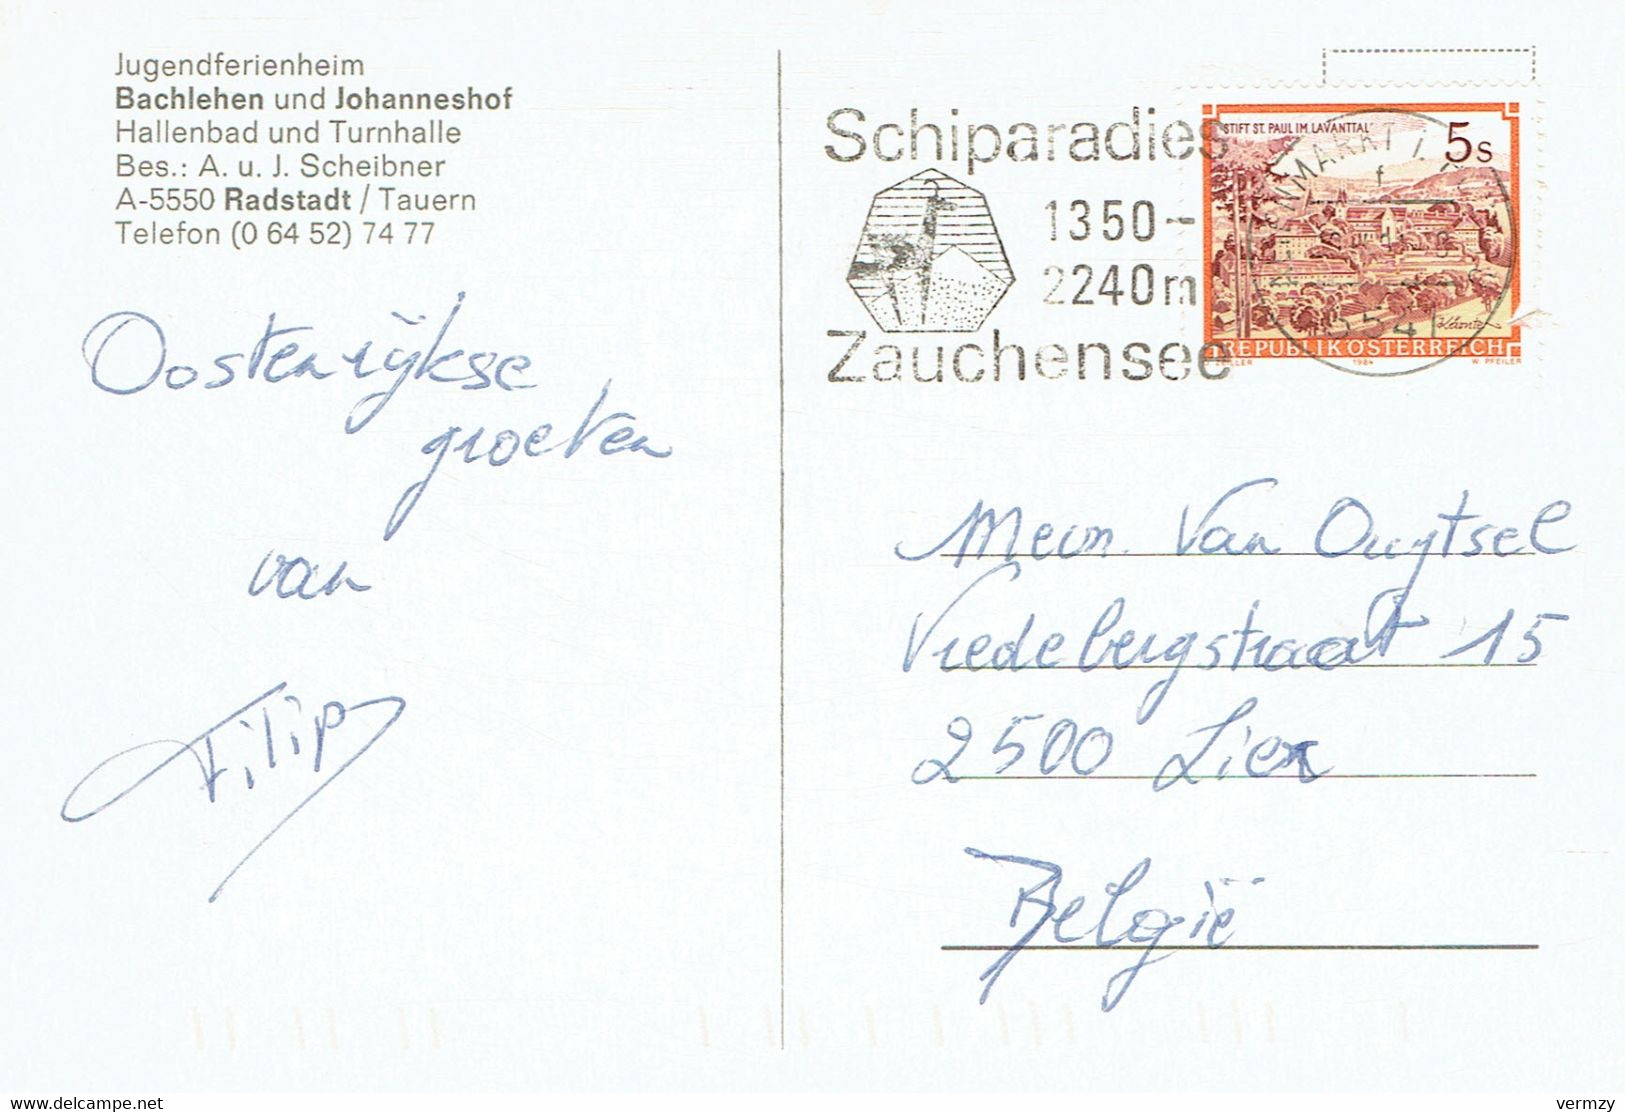 Jugendferienheim
Bachlehen und Johanneshof
Hallenbad und Turnhalle
Bes.: A. u. J. Scheibner
A-5550 Radstadt / Tauern
Telefon (0 64 52) 74 77
Oostenrijkse
groeten
van
Filip
Schiparadies
1350-
2240m
Zauchensee
STIFT ST. PAUL IM LAVANTTAL
5s
REPUBLIK ÖSTERREICH
1984
W. PFEILER
5541
Mevn. Van Ouytsel
Vredebergstraat 15
2500 Lier
België
www.delcampe.net
vermzy